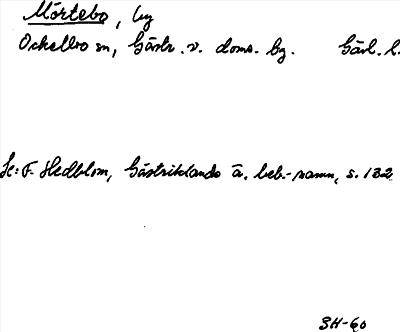 Mörtebo, by
Ockelbo sn, Gästr. v. doms. bg. Gävl. l.
Se: F. Hedblom, Gästriklands ä. beb.-namn, s. 132
SH-60